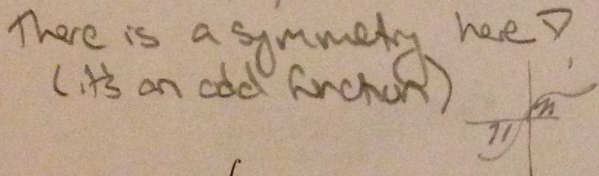 There is a symmetry here
(it's an odd function)